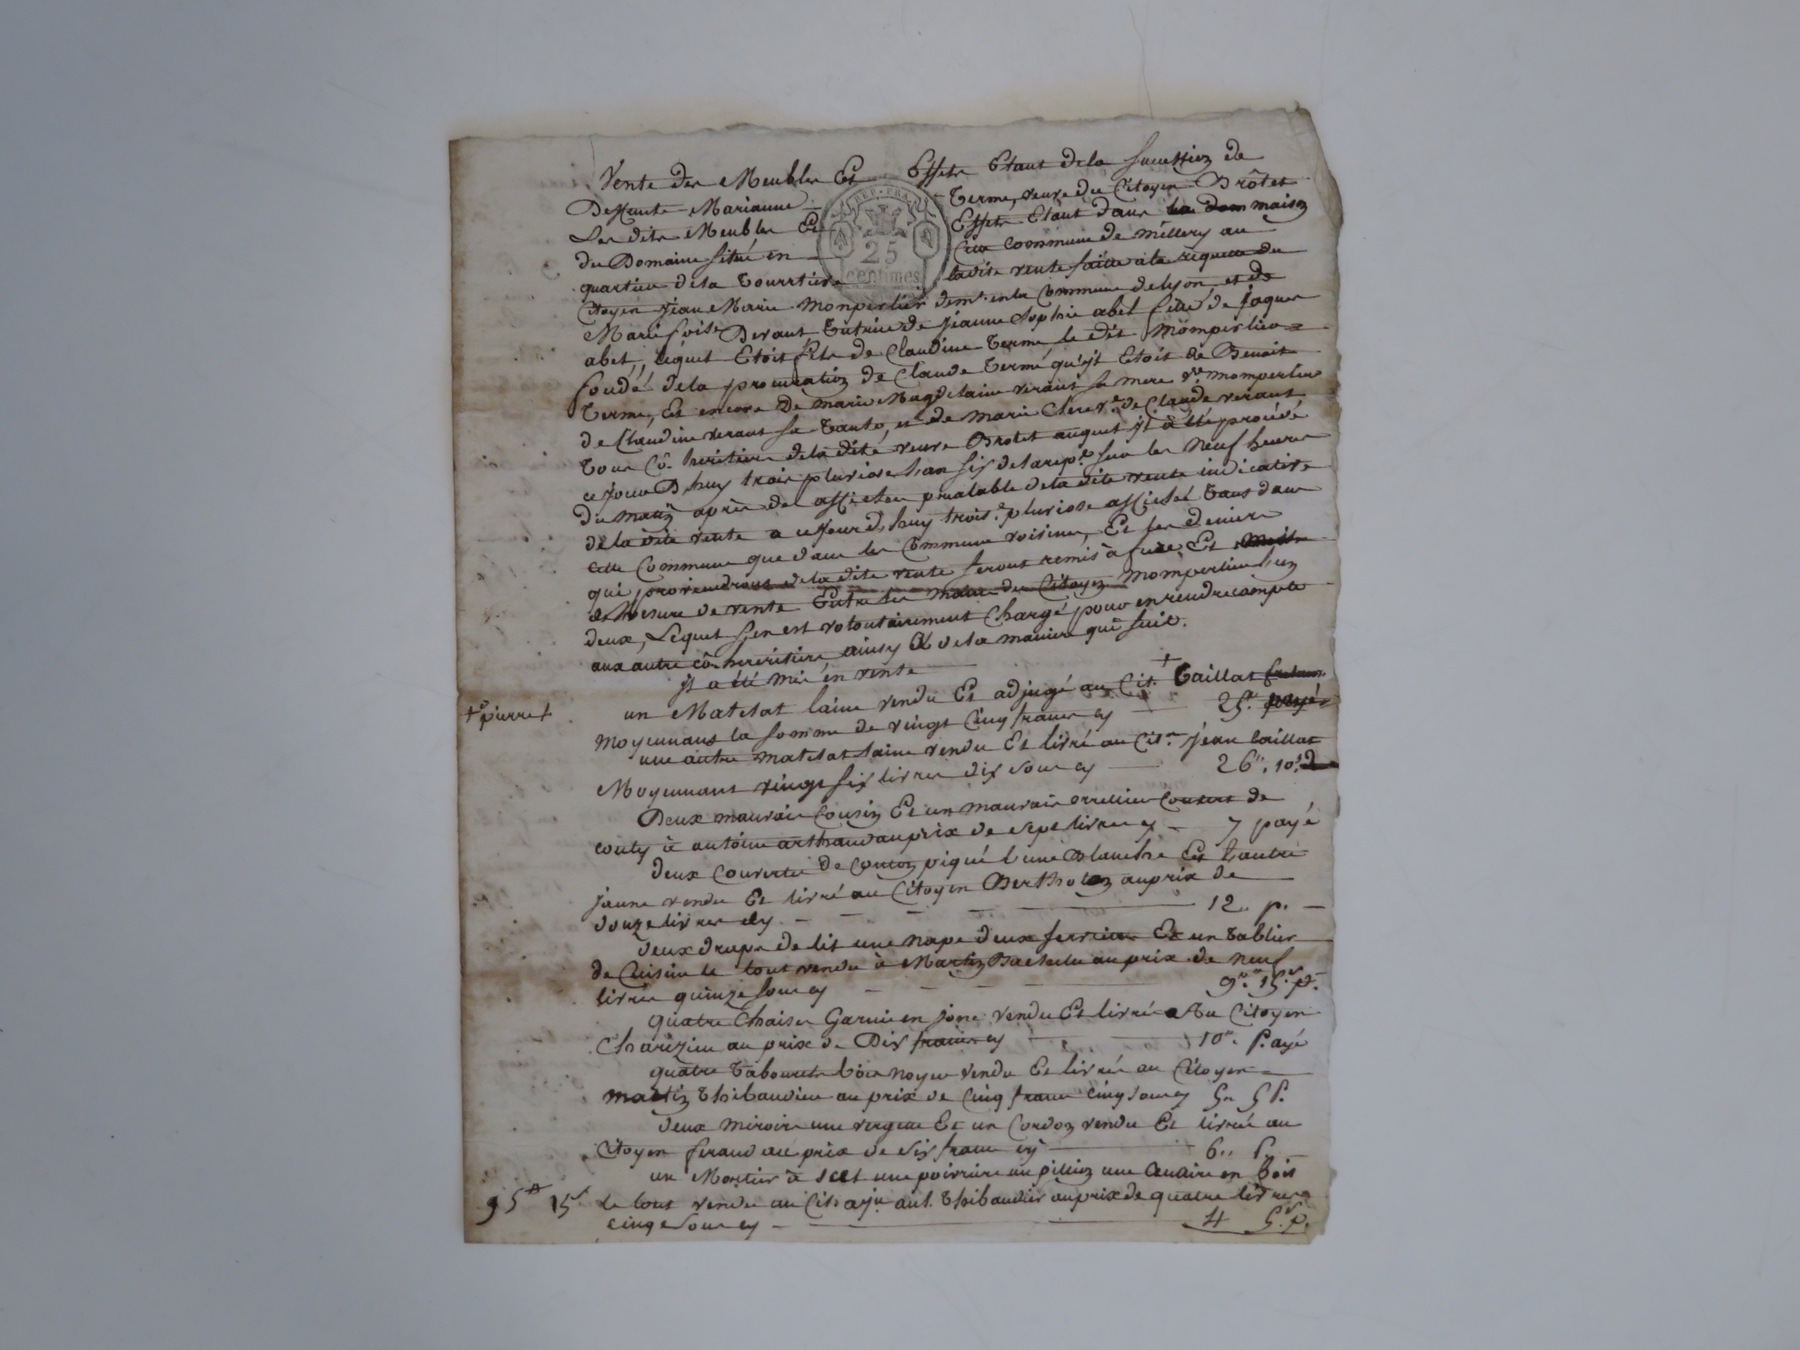 Vente des Meubles Et Effets Etant de la succession de
Deffunte Marianne Terme, veuve du Citoyen Brôtet
Les dits Meubles Et Effets Etant dans la maison
du Domaine situé en Cette Commune de millery au
quartier de la Tourrtière ladite vente faitte a la requette du
Citoyen Jean Marie Monperlier demt. en la Commune de lyon, et de
Marie Verant Tutrice de jeanne Sophie abel fille de jaques
abel, lequel Etoit fils de Claudine Terme, le dit Momperlier
fondé de la procuration de Claude Terme qu'yl Etoit de Benoit
Terme, Et encore De marie Magdelaine verant sa mere ve. momperlier
de Claudine verant sa Tante, et de marie Clerc ve. de Claude verant
Tous Cô heritiers de la dite veuve Brotet auquel yl a été procédé
ce jour D'huy trois pluviose l'an six de la rep.e sur les Neuf heures
du matin après des affiches prealable de la dite vente indicative
de la dite vente a ce jour d'huy trois.e pluviose affichés tant dans
cette Commune que dans les Communes voisines, Et les deniers
qui proviendront de la dite vente seront remis à fure Et
et Mesure de vente Entre les mains du Citoyen Momperlier l'un
deux, Lequel s'en est volontairement Chargé pour en rendre compte
aux autre cô-herеritiers ainsy Et de la maniere qui suit.
yl a été mis en vente
+ pierre + un Matelat laine vendu Et adjugé au Cit. + Taillat
Moyennant la somme de vingt Cinq francs cy 25.# payé
une autre matelat laine vendu Et livré au Cit.n jean taillat
Moyennant vingt six livres dix sous cy 26". 10.s
Deux mauvais Cousin Et un mauvais orrellier Couvert de
couty à antoine arthaud au prix de sept livres cy 7 payé
deux Couverte de Couton piqué l'une Blanche Et l'autre
jaune vendu Et livré au Citoyen Bertholon au prix de
douze livres cy 12.. p.
deux draps de lit une Nape deux serviete Et un tablier
de Cuisine le tout vendu à Martin Bachelu au prix de neuf
livres quinze sous cy 9." 15.s p.
quatre Chaises Garnie en jonc vendu Et livré a Au Citoyen
Charezieu au prix de Dix francs cy 10". Payé
quatre Tabourets bois noyer vendu Et livré au Citoyen
martin Thibaudier au prix de Cinq francs cinq sous cy 5" 5 P.
deux miroirs une vergette Et un Cordon vendu Et livré au
Citoyen feraud au prix de six francs cy 6" P.
un Mortier à sel une poivrière un pillon une Quaire en bois
95# 15s le tout vendu au Cit. Thibaudier au prix de quatre livres
cinq sous cy 4 5.s p.
REP. FRA.
25
centimes